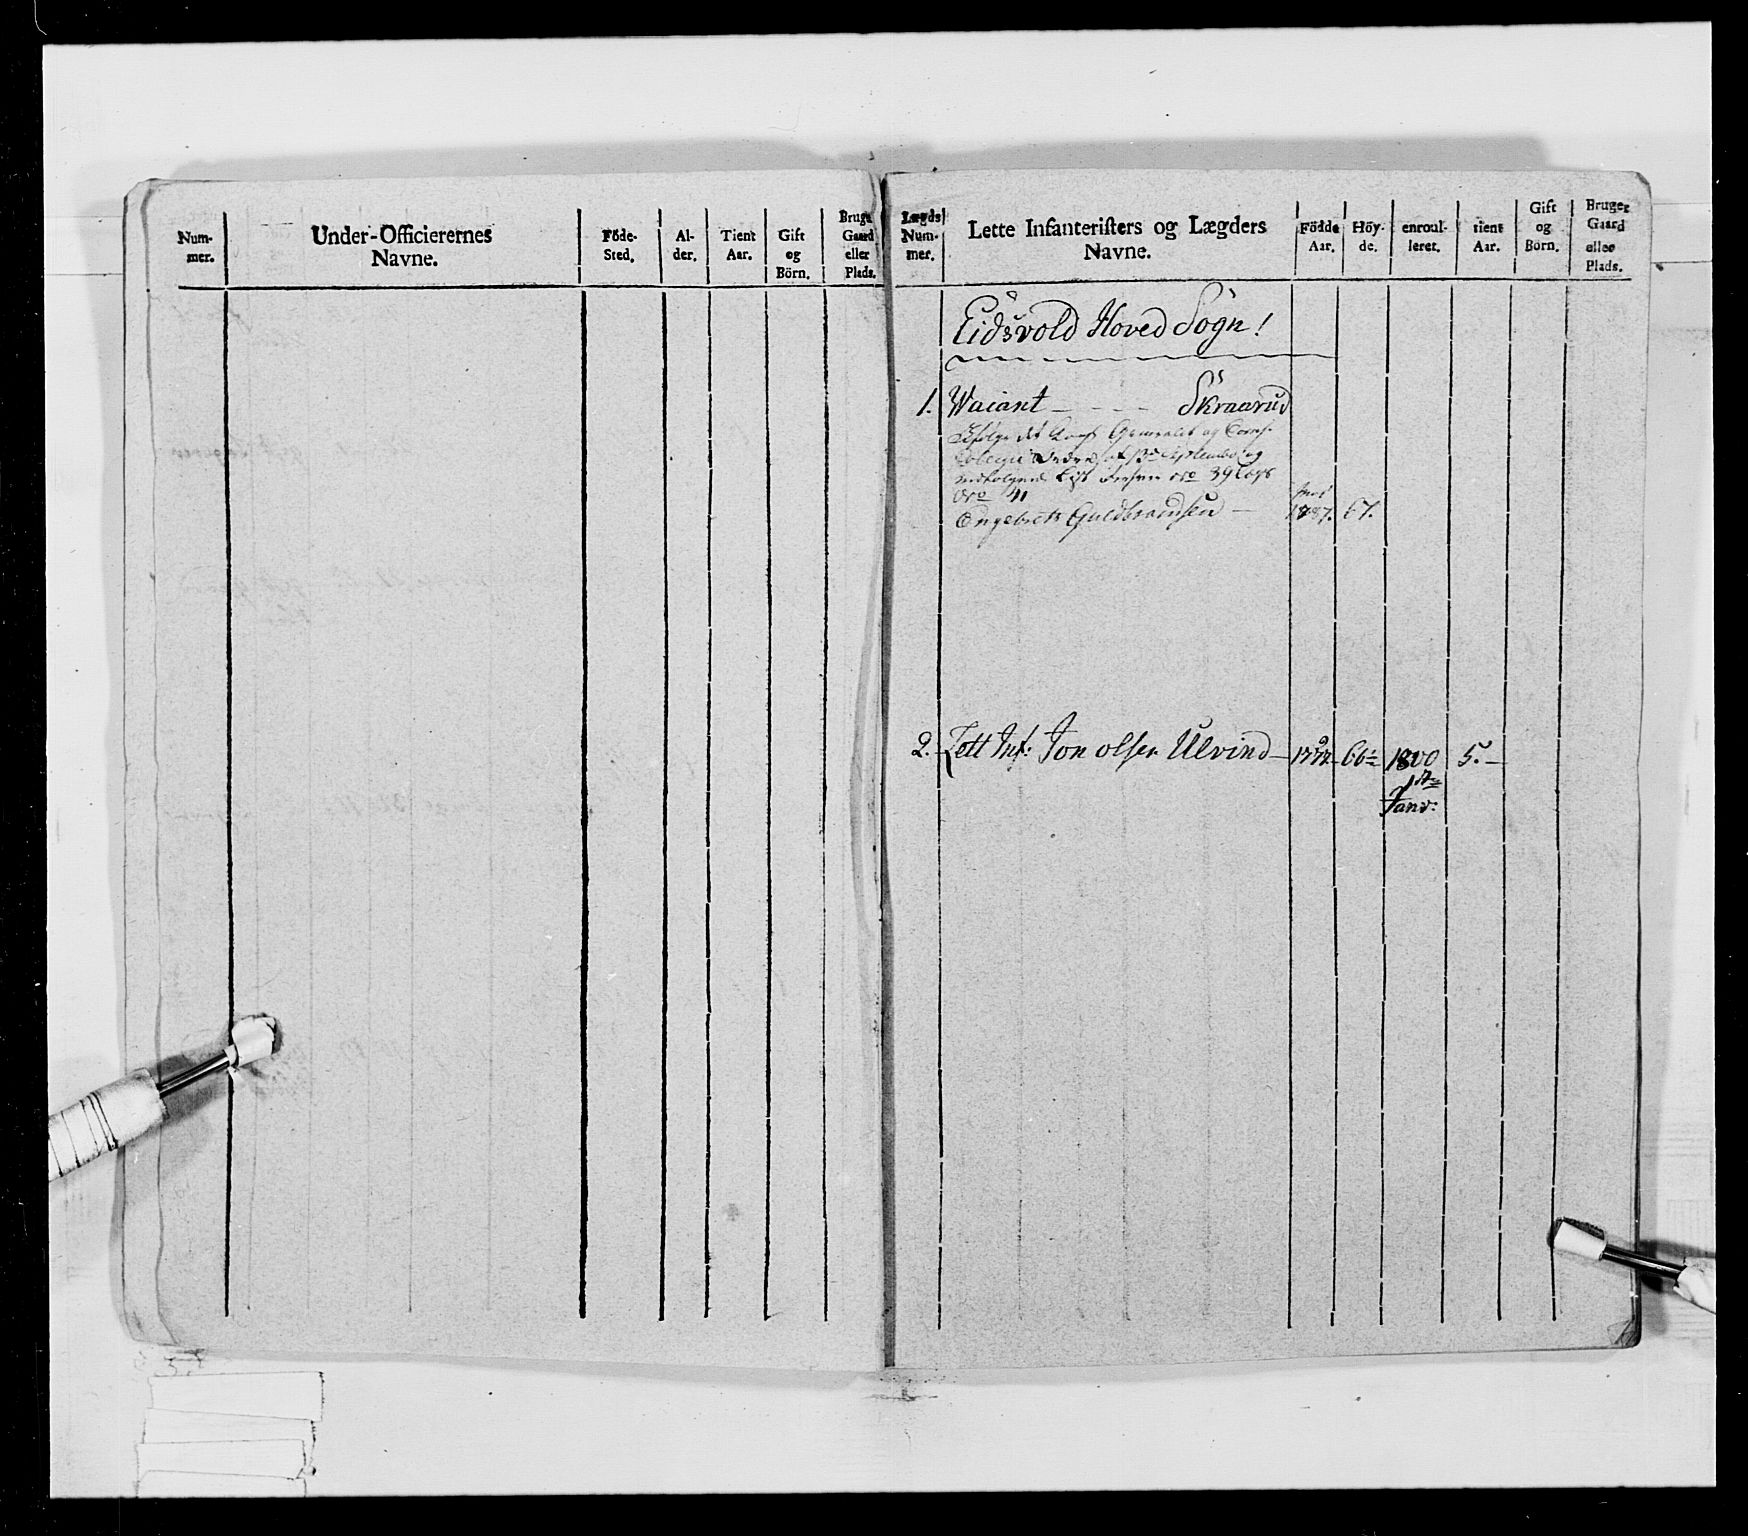 Num-
mer.
Under-Officierernes
Navne.
Föde-
Sted.
Al-
der.
Tient
Aar.
Gift
og
Börn.
Bruge
Gaard
eller
Plads.
Lægds
Num-
mer.
Lette Infanteristers og Lægders
Navne.
Födde
Aar.
Höy-
de.
enroul-
leret.
tient
Aar.
Gift
og
Börn.
Bruger
Gaard
eller
Plads.
Eidsvold Hoved Sogn!
1. Vacant - - - - Skraarud
det Generalit og
af 13de Septembr og
List No 39
No 11
Engebret Guldbrandsen - 1787. 67.
2. Lett Inf: Jon olsen Ulvind - 1777 - 66 1800 5. -
1te
Janv: